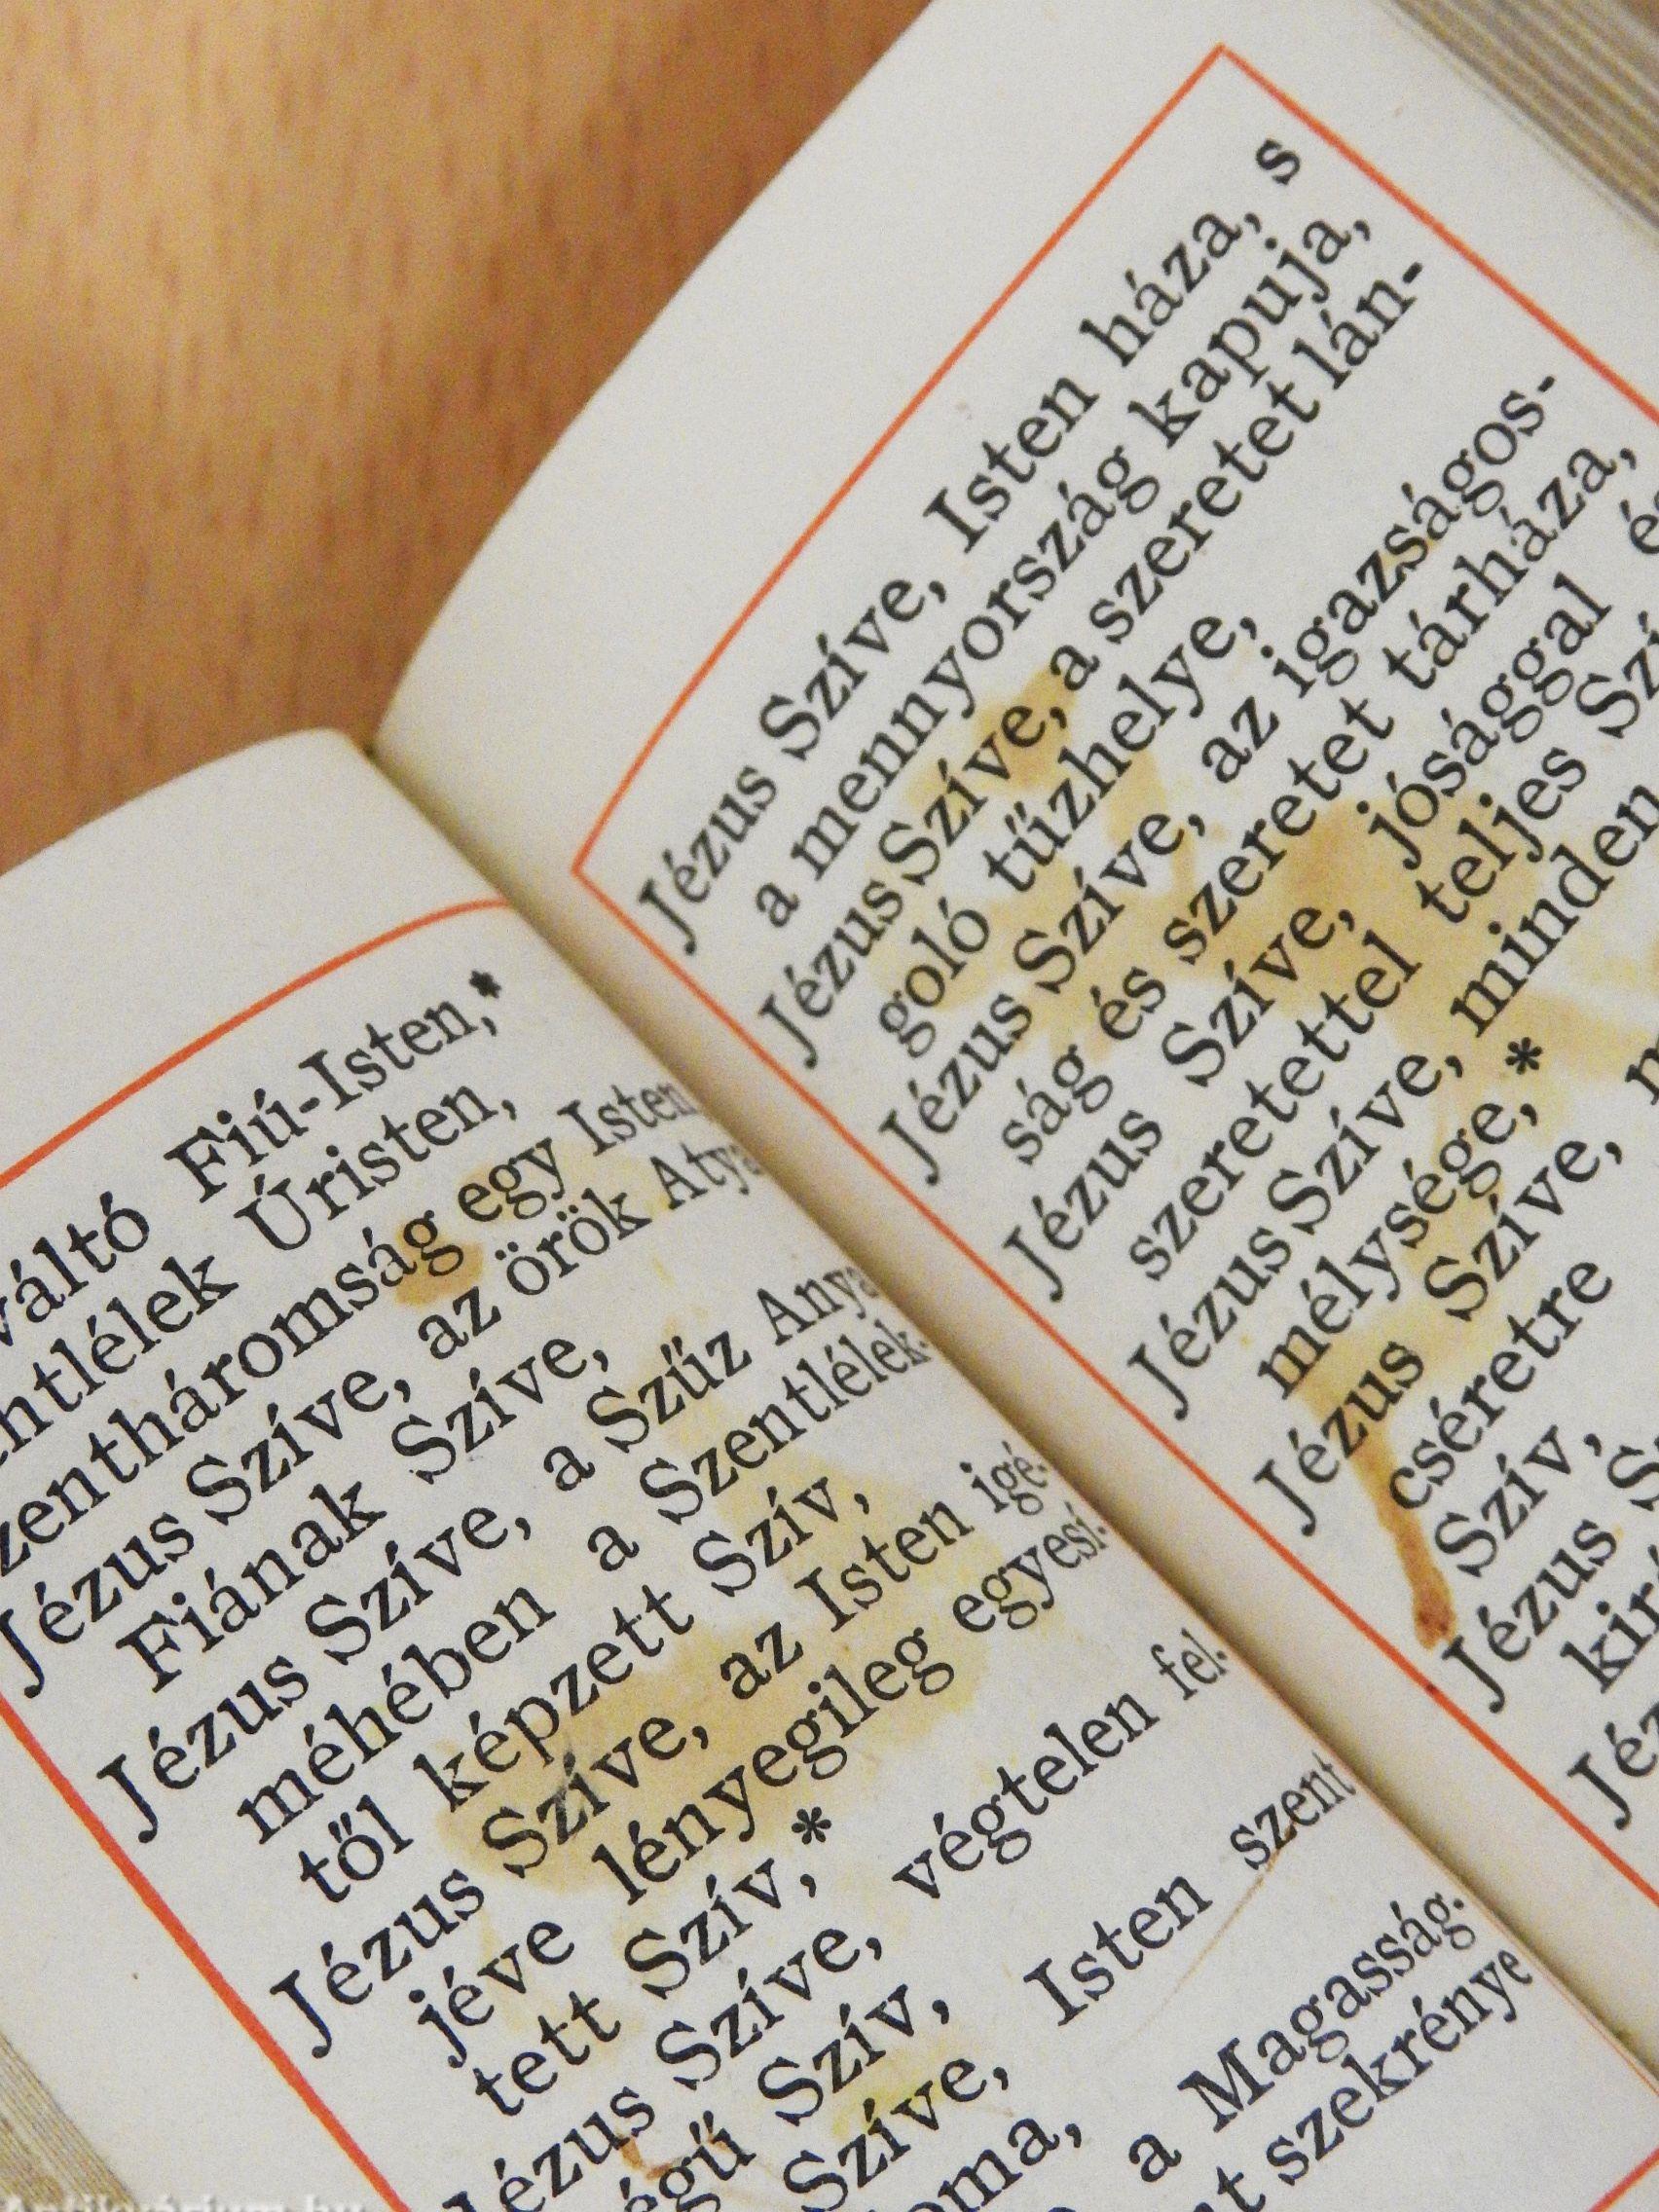 Fiú-Isten,*
Úristen,
egy Isten
Jézus Szíve, az örök Atya
Fiának Szíve,
Jézus Szíve, a Szűz Anya
méhében a Szentlélek-
től képzett Szív,
Jézus Szíve, az Isten igé-
jéve lényegileg egyesí-
tett Szív,*
Szíve, végtelen fel-
Szív,
Szíve, Isten szent
a Magasság-
szekrénye
Jézus Szíve, Isten háza, s
a mennyország kapuja,
Jézus Szíve, a szeretet lán-
goló tűzhelye,
Jézus Szíve, az igazságos-
ság és szeretet tárháza,
Jézus Szíve, jósággal
szeretettel teljes
Jézus Szíve, minden
mélysége,*
Jézus Szíve,
cséretre
Szív,
Jézus